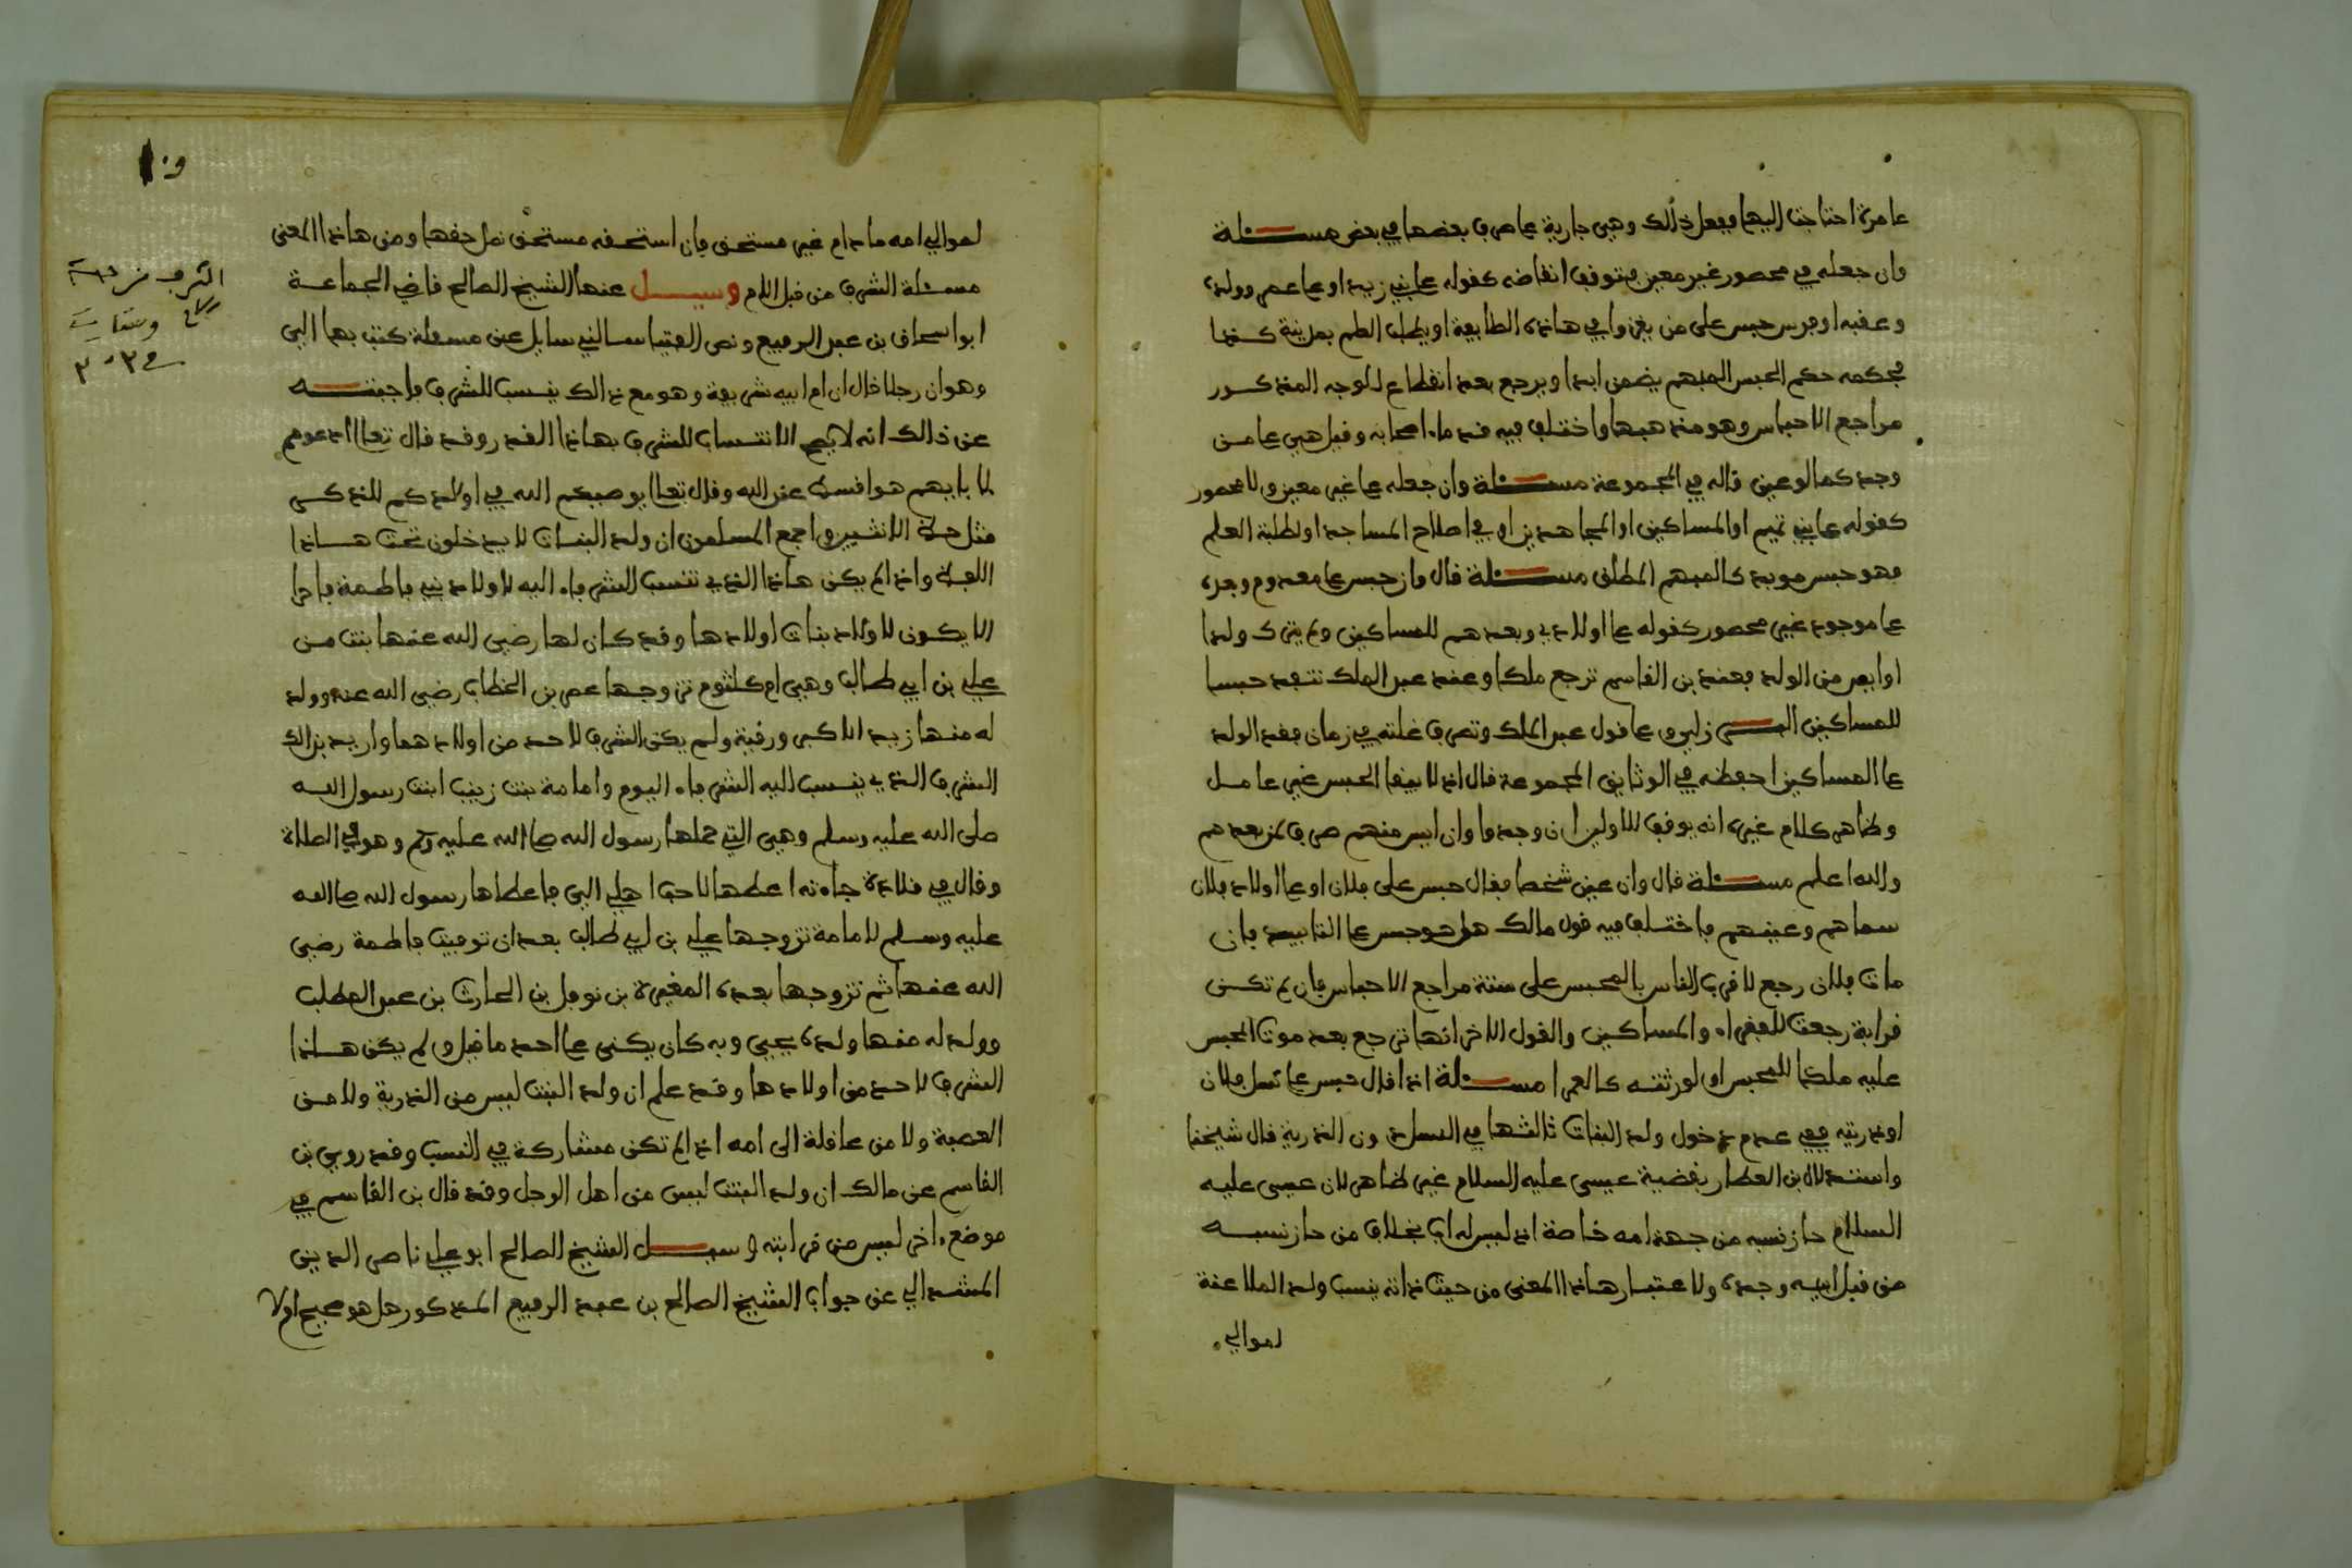 عامرة احتاجت اليها ويفعل ذالك وهي جارية على صرف بعضها في بعض مسئلة
وان جعله في محصور غير معين متوقف انقاضه كقوله على بني زيد او على عمر وولده
وعقبه او فرس حبس على من يغزوا في هاذه الطايفة او يطلب العلم بمدينة كذا
فحكمه حكم الحبس المبهم يضمن ابدا ويرجع بعد انقطاع الوجه المذكور
مراجع الاحباس وهو مذهبها واختلف فيه قدماء اصحابه وقيل هي على من
وجد كما لو عين قاله في المجموعة مسئلة وان جعله على غير معين ولا محصور
كقوله على بني تميم او المساكين او المجاهدين او في اصلاح المساجد او لطلبة العلم
فهو حبس موبد كالمبهم المطلق مسئلة قال فان حبس على معدوم وجره
على موجود غير محصور كقوله على اولادي وبعدهم للمساكين ولم يترك ولدا
او ايس من الولد فعند بن القاسم ترجع ملكا وعند عبد الملك تنفذ حبسا
للمساكين على قول عبد الملك وتصرف غلته في زمان فقد الولد
على المساكين احفظه في الوثايق المجموعة قال اذ لا يبقا الحبس غير عامل
وظاهر كلام غيره انه يوقف للاولين ان وجدوا وان ايس منهم صرف لمن بعدهم
والله اعلم مسئلة قال وان عين شخصا فقال حبس على فلان او على اولاد فلان
سماهم وعينهم فاختلف فيه قول مالك هل هو حبس على التابيد فان
مات فلان رجع لاقرب الناس بالمحبس على سنة مراجع الاحباس فان لم تكن
قرابة رجعت للفقراء والمساكين والقول الاخر انها ترجع بعد موت المحبس
عليه ملكا للمحبس او لورثته كالعمرا مسئلة اذا قال حبس على نسل فلان
او ذريته ففي عدم دخول ولد البنات ثالثها في النسل دون الذرية قال شيخنا
واستدلال بن العطار بقضية عيسى عليه السلام غير ظاهر لان عيسى عليه
السلام حاز نسبه من جهة امه خاصة اذ ليس له اب بخلاف من حاز نسبه
من قبل ابيه وجده ولا عتبار هاذا المعنى من حيث ذاته ينسب ولد الملاعنة
لموالي
لموالي امه ما دام غير مستحق فان استحقه مستحق نقل حقها ومن هاذا المعنى
مسئلة الشرف من قبل الام وسيل عنها الشيخ الصالح قاضي الجماعة
ابو اسحاق بن عبد الرفيع ونص الفتيا سالني سايل عن مسئلة كتب بها الي
وهو ان رجلا قال ان ام ابيه شريفة وهو مع ذالك ينسب للشرف فاجبته
عن ذالك انه لا يصح الانتساب للشرف بهاذا القدر وقد قال تعالى ادعوهم
لابايهم هو اقسط عند الله وقال تعالى يوصيكم الله في اولادكم للذكر
مثل حظ الانثيين واجمع المسلمون ان ولد البنات لا يدخلون تحت هاذا
اللفظ واذا لم يكن هاذا الذي تنتسب الشرفاء اليه لاولاد بني فاطمة فاحرا
الا يكون لاولاد بنات اولادها وقد كان لها رضي الله عنها بنت من
علي بن ابي طالب وهي ام كلثوم تزوجها عمر بن الخطاب رضي الله عنه وولد
له منها زيد الاكبر ورقية ولم يكن الشرف لاحد من اولادهما واريد بذالك
الشرف الذي ينسب اليه الشرفاء اليوم وامامة بنت زينب ابنت رسول الله
صلى الله عليه وسلم وهي التي حملها رسول الله صلى الله عليه وسلم وهو في الصلاة
وقال في قلادة جاءته اعطها لاحب اهلي الي فاعطاها رسول الله صلى الله
عليه وسلم لامامة تزوجها علي بن ابي طالب بعد ان توفيت فاطمة رضي
الله عنها ثم تزوجها بعده المغيرة بن نوفل بن الحارث بن عبد المطلب
وولد له منها ولده يحيى وبه كان يكنى على احد ما قيل ولم يكن هاذا
الشرف لاحد من اولادها وقد علم ان ولد البنت ليس من الذرية ولا من
العصبة ولا من عاقلة الى امه اذا لم تكن مشاركة في النسب وقد روى بن
القاسم عن مالك ان ولد البنت ليس من اهل الرجل وقد قال بن القاسم في
موضع ءاخر ليس من قرابته وسيل الشيخ الصالح ابو علي ناصر الدين
المشدالي عن جواب الشيخ الصالح بن عبد الرفيع المذكور هل هو صحيح ام لا
الشرف من جهة
الام